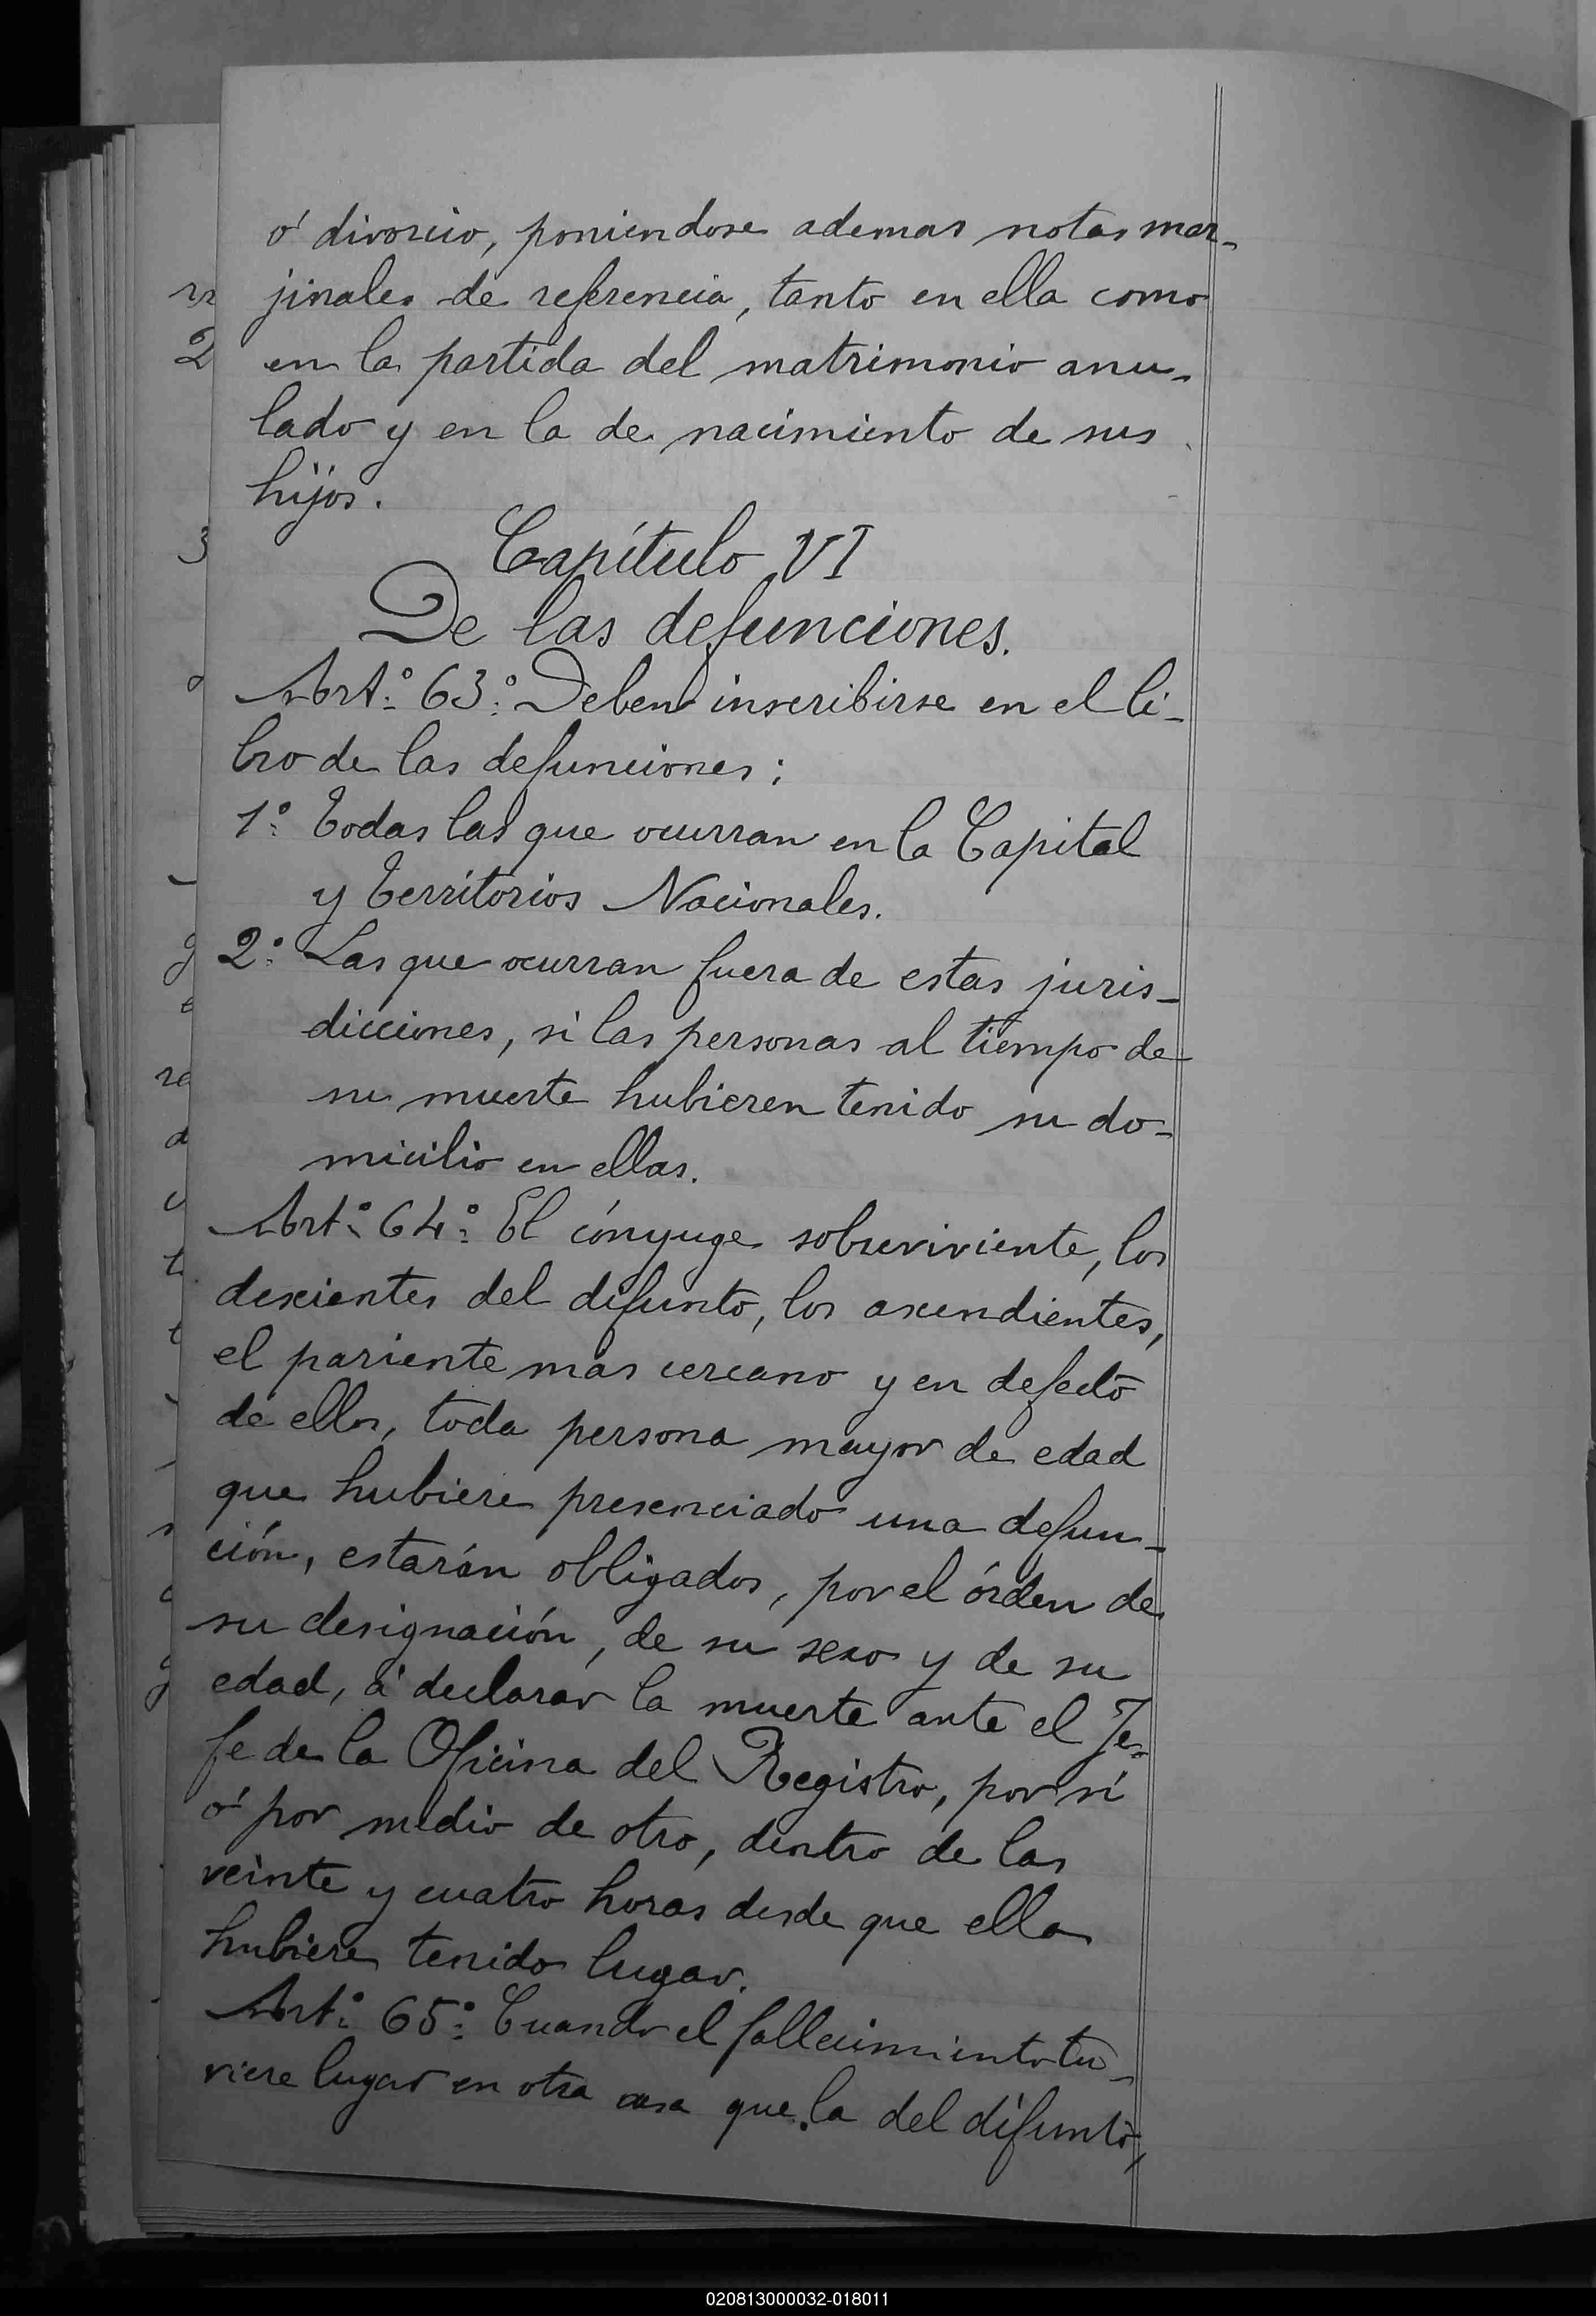 ó divorcio, poniendose ademas notas mar-
jinales de referencia, tanto en ella como
en la partida del matrimonio anu-
lado y en la de nacimiento de sus
hijos.
Capítulo VI
De las defunciones.
Art.º 63.º Deben inscribirse en el li-
bro de las defunciones:
1.º Todas las que ocurran en la Capital
y Territorios Nacionales.
2.º Las que ocurran fuera de estas juris-
dicciones, si las personas al tiempo de
su muerte hubieren tenido su do-
micilio en ellas.
Art.º 64.º El cónyuge sobreviviente, los
descientes del difunto, los ascendientes,
el pariente mas cercano y en defecto
de ellos, toda persona mayor de edad
que hubiere presenciado una defun-
ción, estarán obligados, por el órden de
su designación, de su sexo y de su
edad, á declarar la muerte ante el Je-
fe de la Oficina del Registro, por sí
ó por medio de otro, dentro de las
veinte y cuatro horas desde que ella
hubiere tenido lugar.
Art.º 65.º Cuando el fallecimiento tu-
viere lugar en otra casa que la del difunto,
020813000032-018011